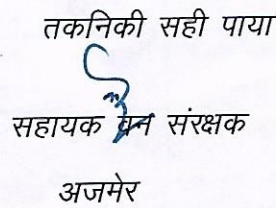 तकनिकी सही पाया
सहायक वन संरक्षक
अजमेर